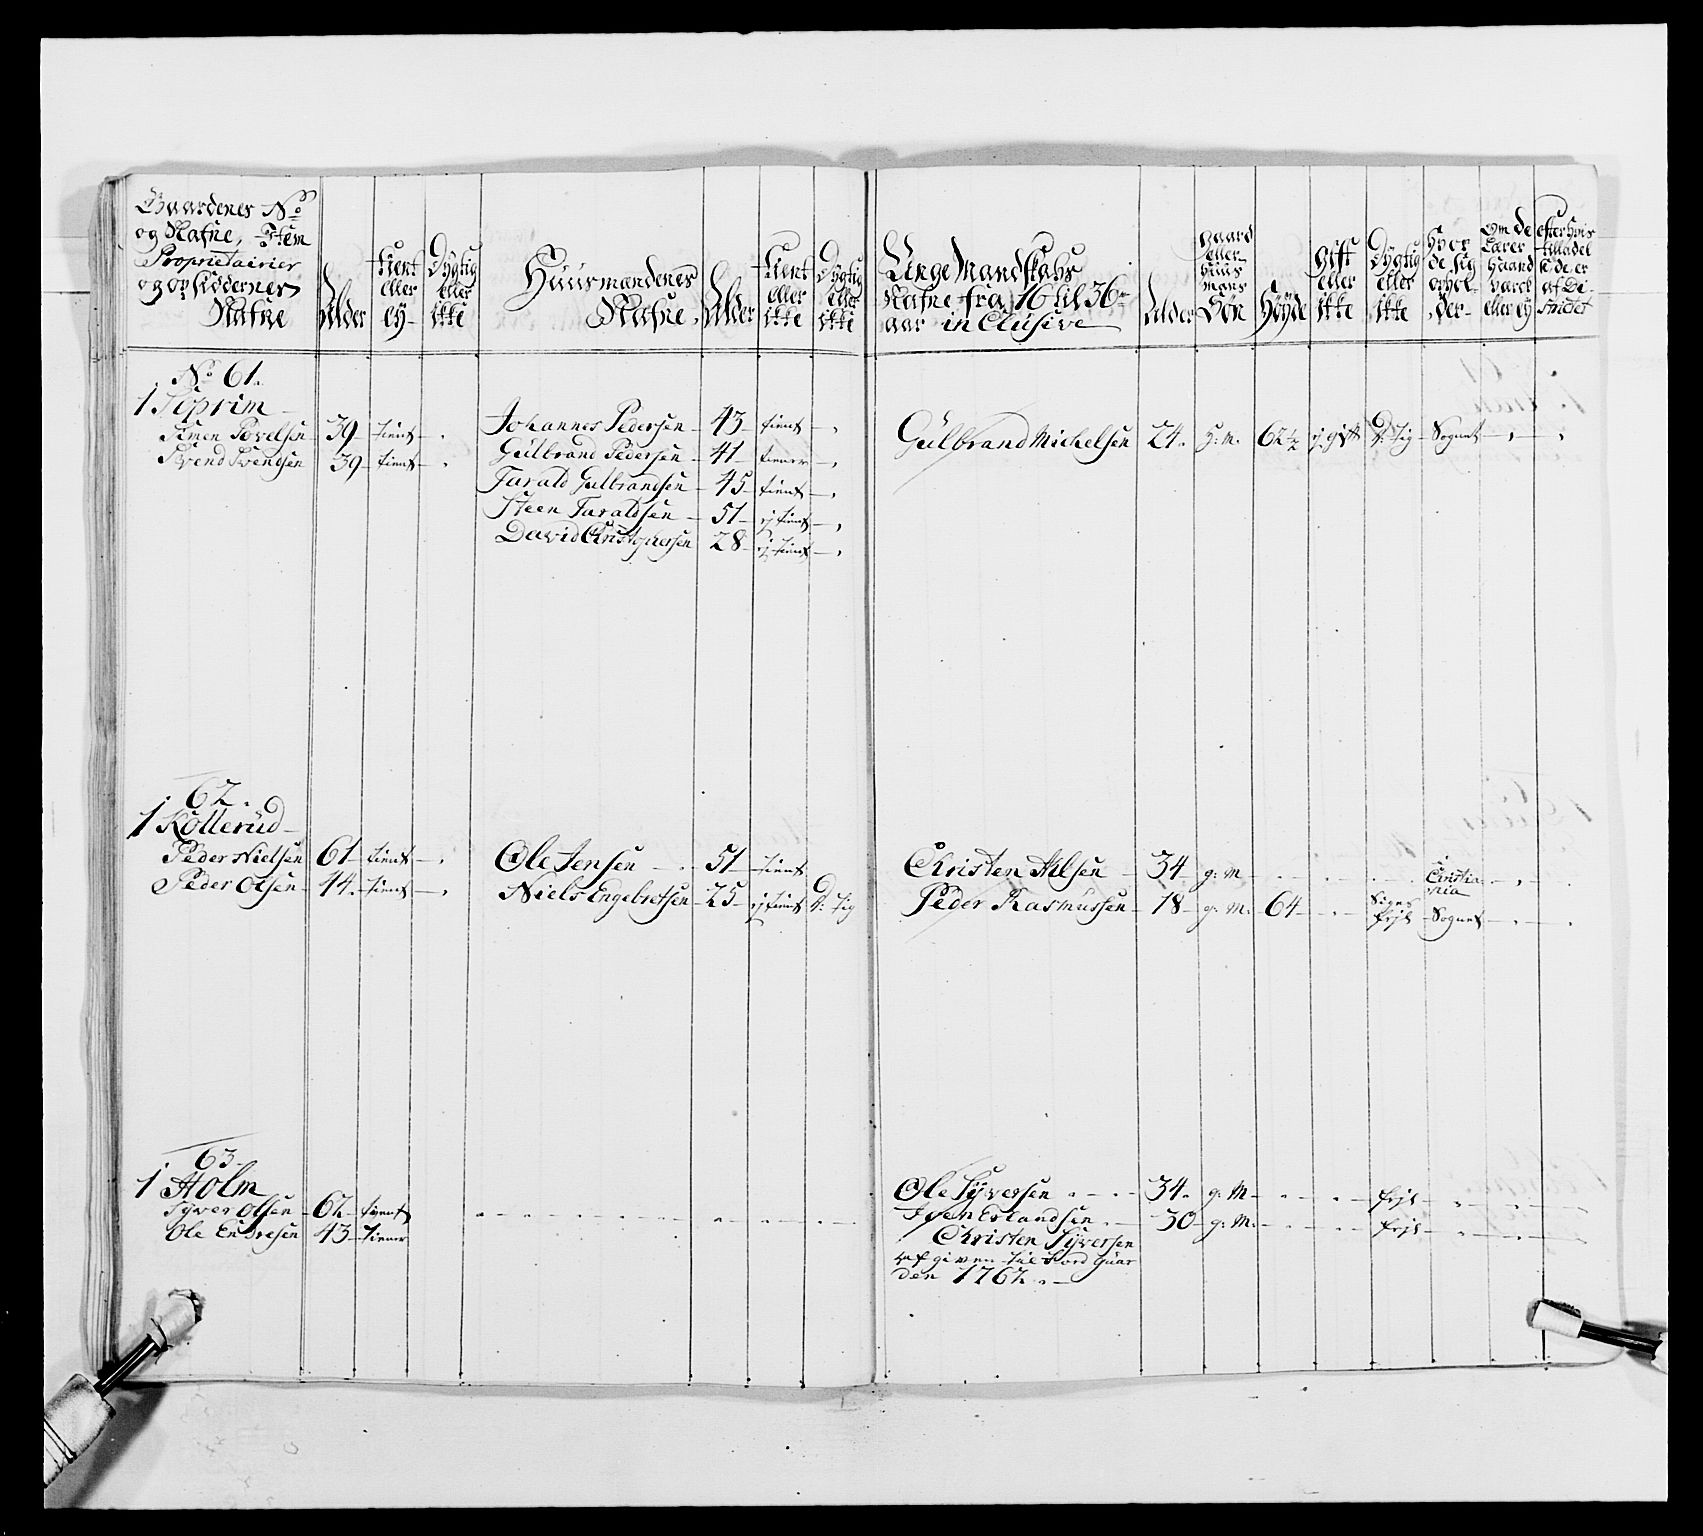 Gaardenes No
og Nafne, Item
Proprietairier
og opsidernes
Nafne
Alder
tient
eller
ey
Dygtig
eller
ikke
Huusmandenes
Nafne
Alder
tient
eller
ikke
Dygtig
eller
ikke
Unge Mandskabs
Nafne fra 16 til 36
aar inclusive
Alder
gaard
eller
huus
mans
Søn
Høyde
gift
eller
ikke
Dygtig
eller
ikke
hvor
de sig
ophol
der
om de
Lærer
haand
værck
eller ey
efter hvis
tilladel
se de er
af Di
strictet
No 61.
1 Toprim
Simen Povelsen 39 tient
Svend Svendsen 39 tient
Johannes Pedersen 43 tient
Gulbrand Pedersen 41 tiener
Tarald Gulbrandsen 45 tient
Steen Taraldsen 51 ej tient
David Christophersen 28 ej tient
Gulbrand Mickelsen 24. g: M. 62½ ej gift D: tig Sognet
62.
1 Kollerud
Peder Nielsen 61 tient
Peder Olsen 44. tient
Ole Jensen 51 tient
Niels Engebretsen 25 ej tient D: tig
Christen Nilsen 34 g: M Christia
nia
Peder Rasmussen 18 g: M: 64 Siges
fejl Sognet
63.
1 Holm
Syver Olsen 62 tient
Ole Endresen 43 tiener
Ole Syversen 34. g: M fejl
Iver Erlandsen 30 g: M. fejl
Christen Syversen
afgiven til Nord Guar
den 1762.